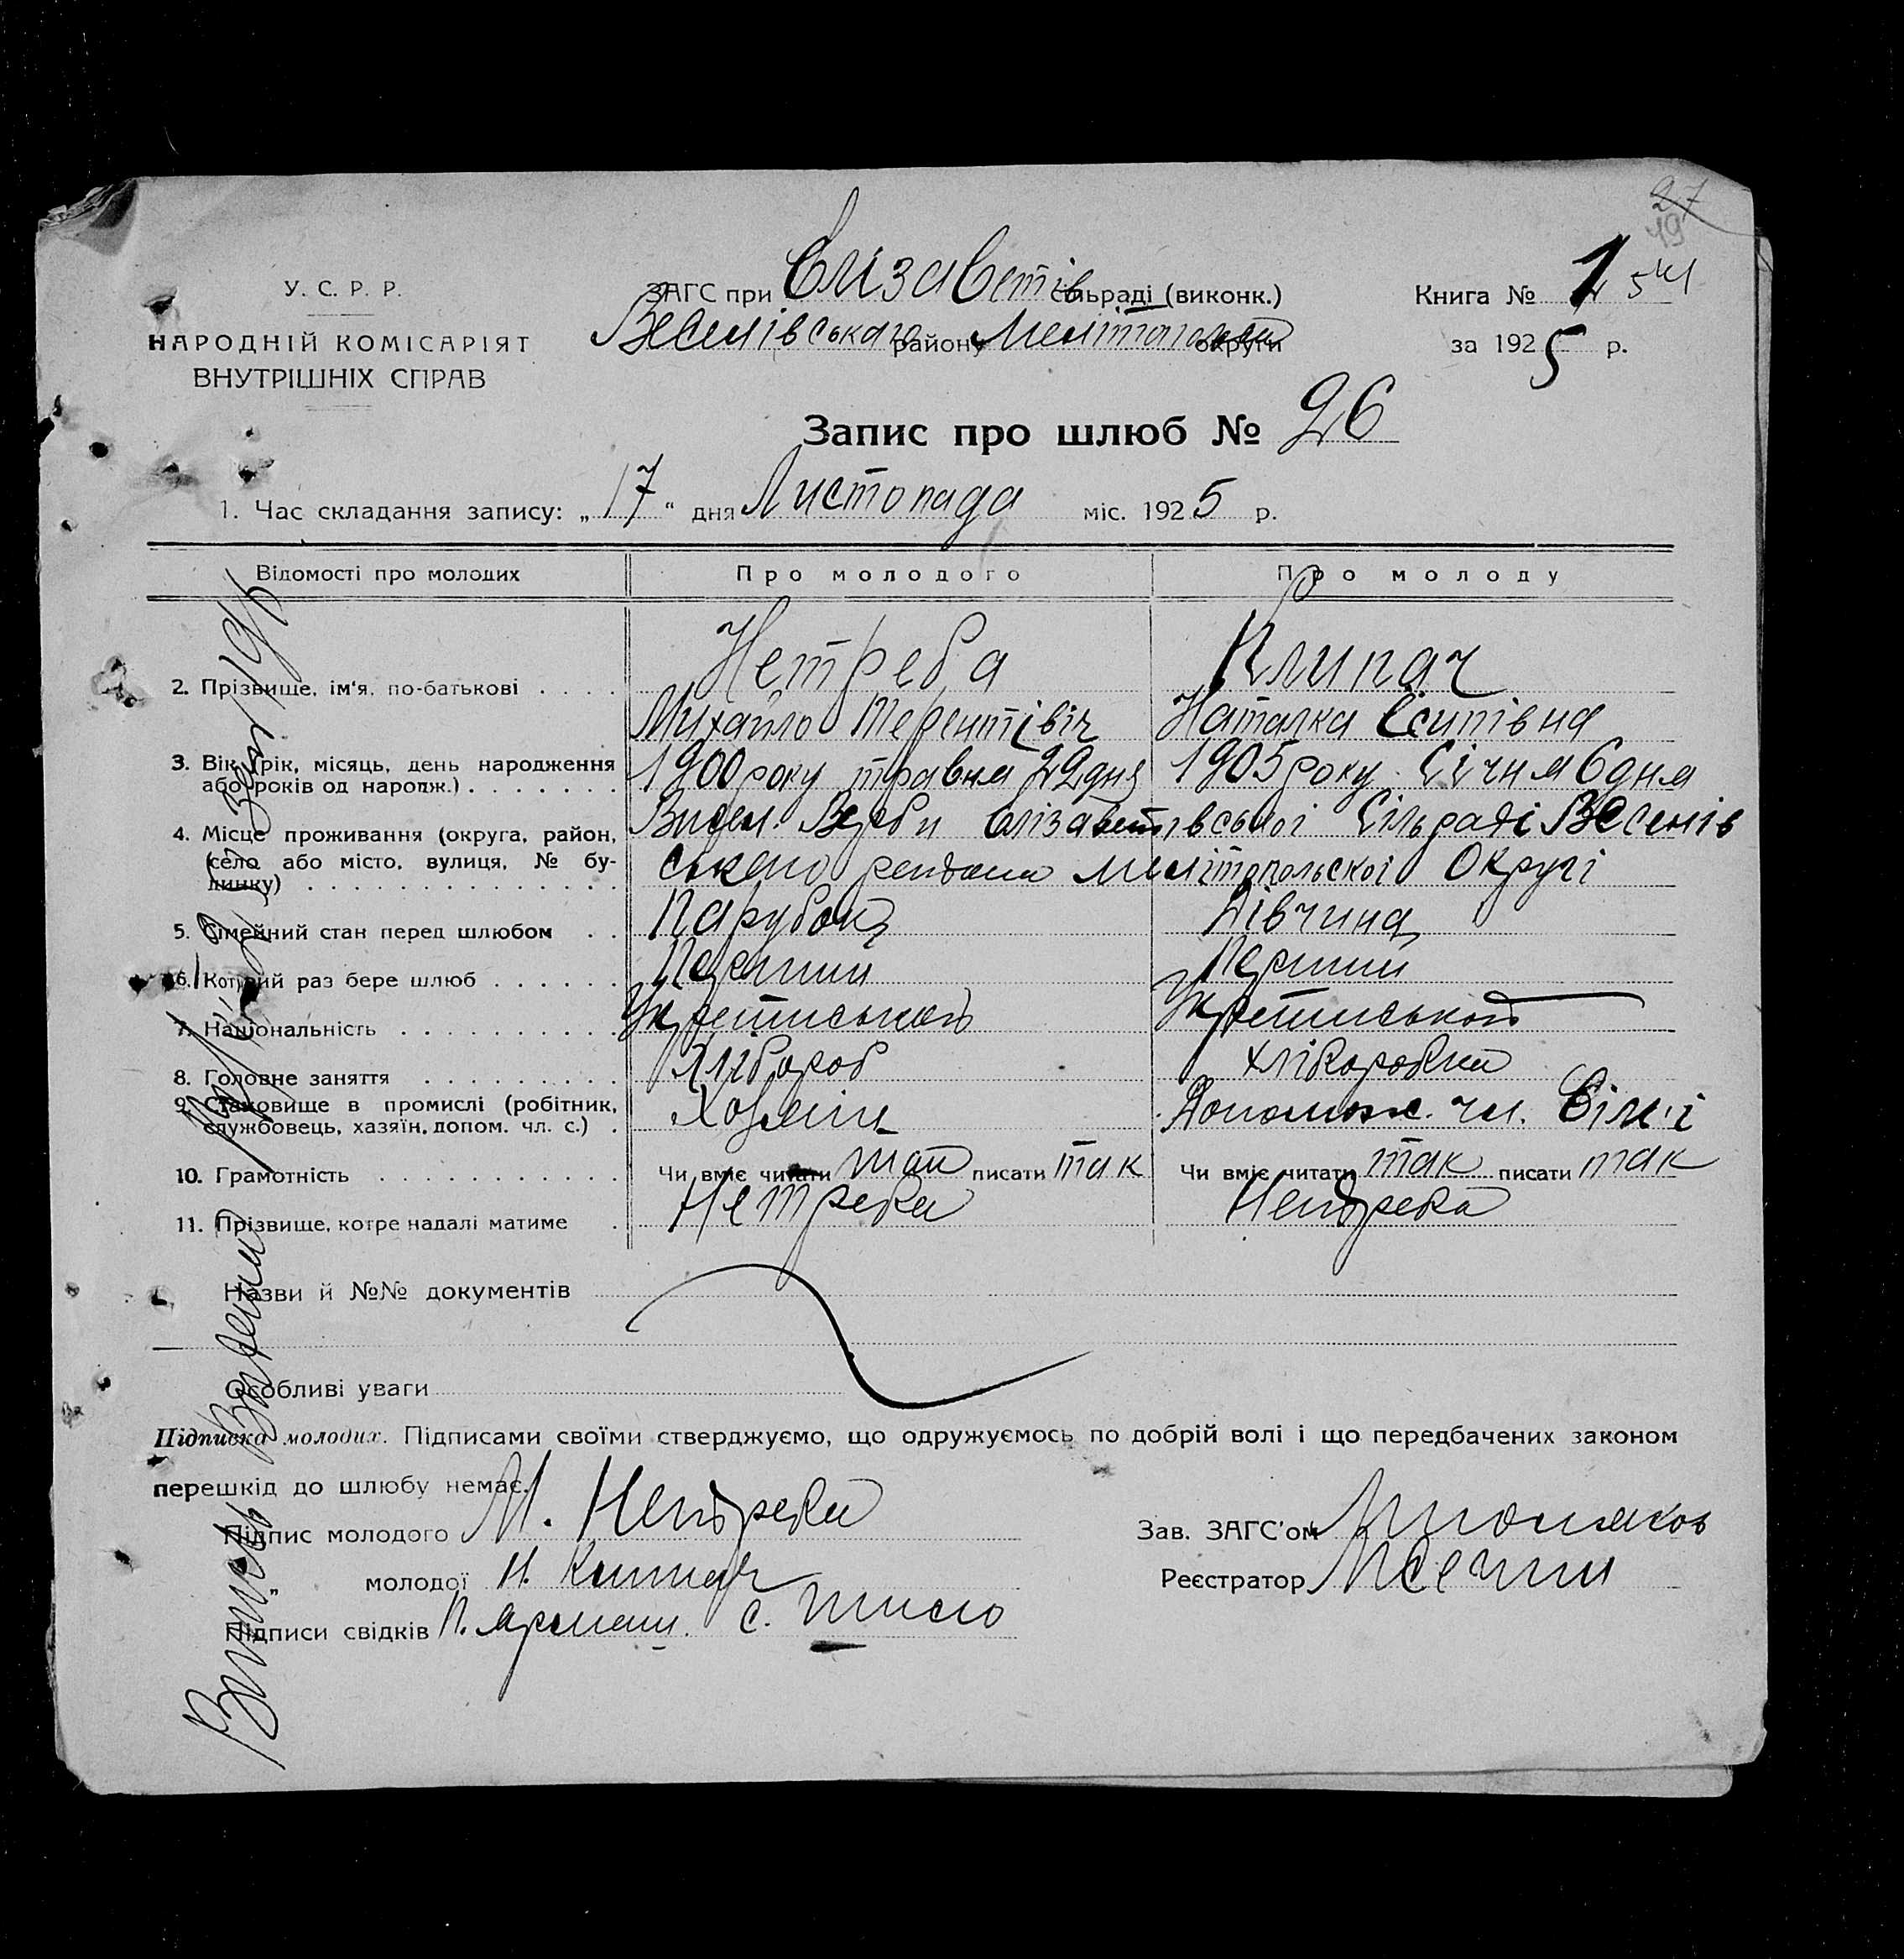 27
49
У. С. Р. Р.
НАРОДНІЙ КОМІСАРІЯТ
ВНУТРІШНІХ СПРАВ
ЗАГС при Єлізаветів сільраді (виконк.)
Веселівського району Мелітопольск округи
Книга № 1
за 1925 р.
Запис про шлюб № 26
1. Час складання запису: „17" дня Листопада міс. 1925 р.
Відомості про молодих Про молодого Про молоду
Нетреба Клипач
2. Прізвище, ім'я, по-батькові . . . .
Михайло Терентівіч Наталка Єсипівна
3. Вік (рік, місяць, день народження
або років од народж.) . . . . . . .
1900 року травня 22 дня 1905 року Січня 6 дня
4. Місце проживання (округа, район,
село або місто, вулиця, № бу-
динку) . . . . . . . . . . . . . .
Висел. Верби Єлізаветівської Сільраді Веселів
ського района Мелітопольскоі Округі
5. Сімейний стан перед шлюбом . . Парубок Дівчина
6. Котрий раз бере шлюб . . . . . . Перший Перший
7. Національність . . . . . . . . . .
8. Головне заняття . . . . . . . . . Хлібороб хліборобка
9. Становище в промислі (робітник,
службовець, хазяїн, допом. чл. с.) .
Хозяїн Допомож. чл. Сім'і
10. Грамотність . . . . . . . . . . . Чи вміє читати так писати так Чи вміє читати так писати так
11. Прізвище, котре надалі матиме . Нетреба Нетреба
Назви й №№ документів
Особливі уваги
Підписка молодих. Підписами своїми стверджуємо, що одружуємось по добрій волі і що передбачених законом
перешкід до шлюбу немає.
Підпис молодого М. Нетреба
Зав. ЗАГС'ом
„ молодої Н. Клипач
Реєстратор
Підписи свідків П. С.